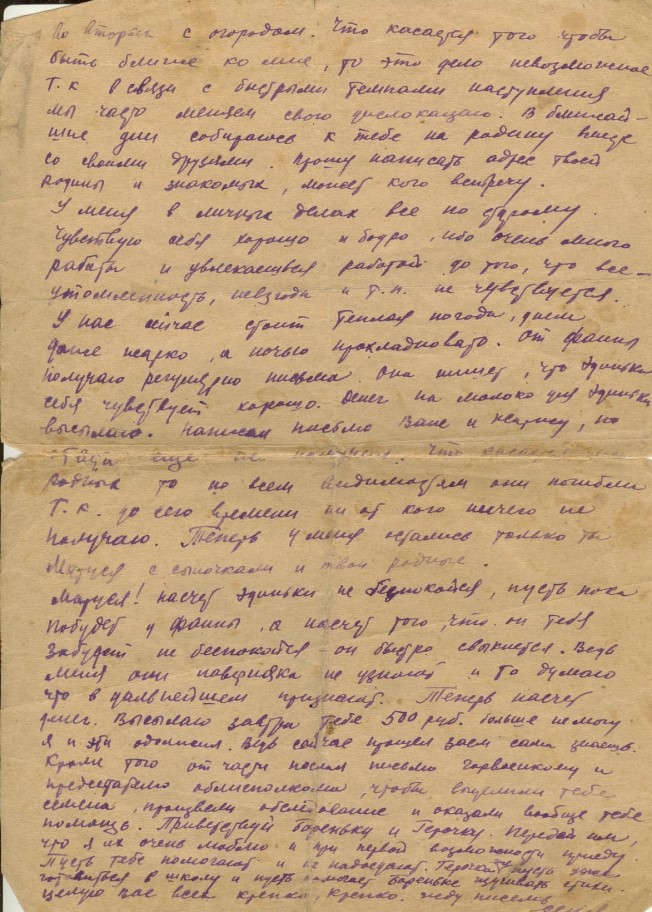 во вторых с огородом. Что касается того чтобы
быть ближе ко мне, то это дело невозможное
Т.к в связи с быстрыми темпами наступления
мы часто меняем свою дислокацию. В ближай-
шие дни собираюсь к тебе на родину вместе
со своими друзьями. Прошу написать адрес твоей
родины и знакомых, может кого встречу.
У меня в личных делах все по старому.
Чувствую себя хорошо и бодро, ибо очень много
работы и увлекаешься работой до того, что все
утомленность, невзгоды и т.п. не чувствуется.
У нас сейчас стоит теплая погода, днем
даже жарко, а ночью прохладновато. От Фаины
получаю регулярно письма. Она пишет, что Эдинька
себя чувствует хорошо. Денег на молоко для Эдиньки
высылаю. Написал письмо Ване и, но
еще не. Что касается
родных то по всем видимостям они погибли
Т.к. до сего времени ни от кого ничего не
получаю. Теперь у меня остались только ты
Маруся с сыночками и твои родные.
Маруся! насчет Эдиньки не беспокойся, пусть пока
побудет у Фаины, а насчет того, что он тебя
забудет не беспокойся - он быстро свыкнется. Ведь
меня они наверняка не узнают и то думаю
что в дальнейшем признают. Теперь насчет
денег. Высылаю завтра тебе 500 руб. больше не могу
я и эти одолжил. Ведь сейчас прошел заем сама знаешь.
Кроме того от части послал письмо горвоенкому и
облисполкома, чтобы выделили тебе
семена, произвели обследование и оказали вообще тебе
помощь. Приветствуй Бореньку и Герочку. Передай им,
что я их очень люблю и при первой возможности приеду.
Пусть тебе помогают и не надоедают. Герочка пусть уже
готовиться в школу и пусть помогает Бореньке изучивать стихи.
целую вас всех крепко, крепко. жду письма